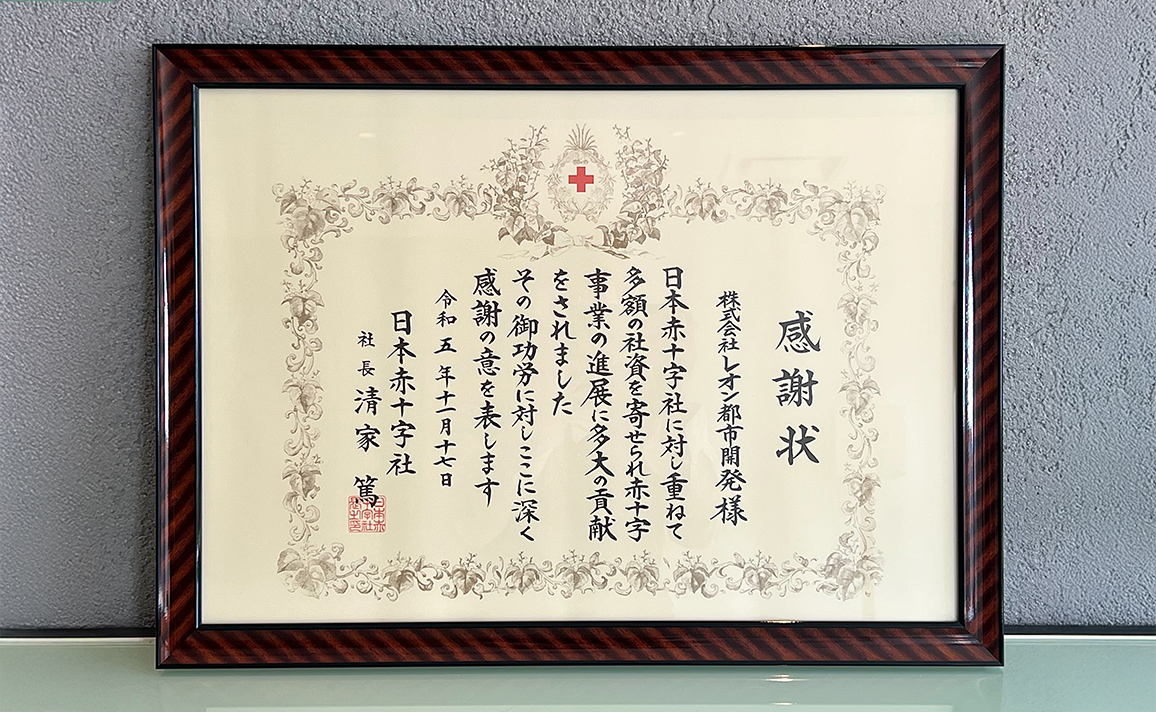 感謝状
株式会社レオン都市開発様
日本赤十字社に対し重ねて
多額の社資を寄せられ赤十字
事業の進展に多大の貢献
をされました
その御功労に対しここに深く
感謝の意を表します
令和五年十一月十七日
日本赤十字社
社長清家篤